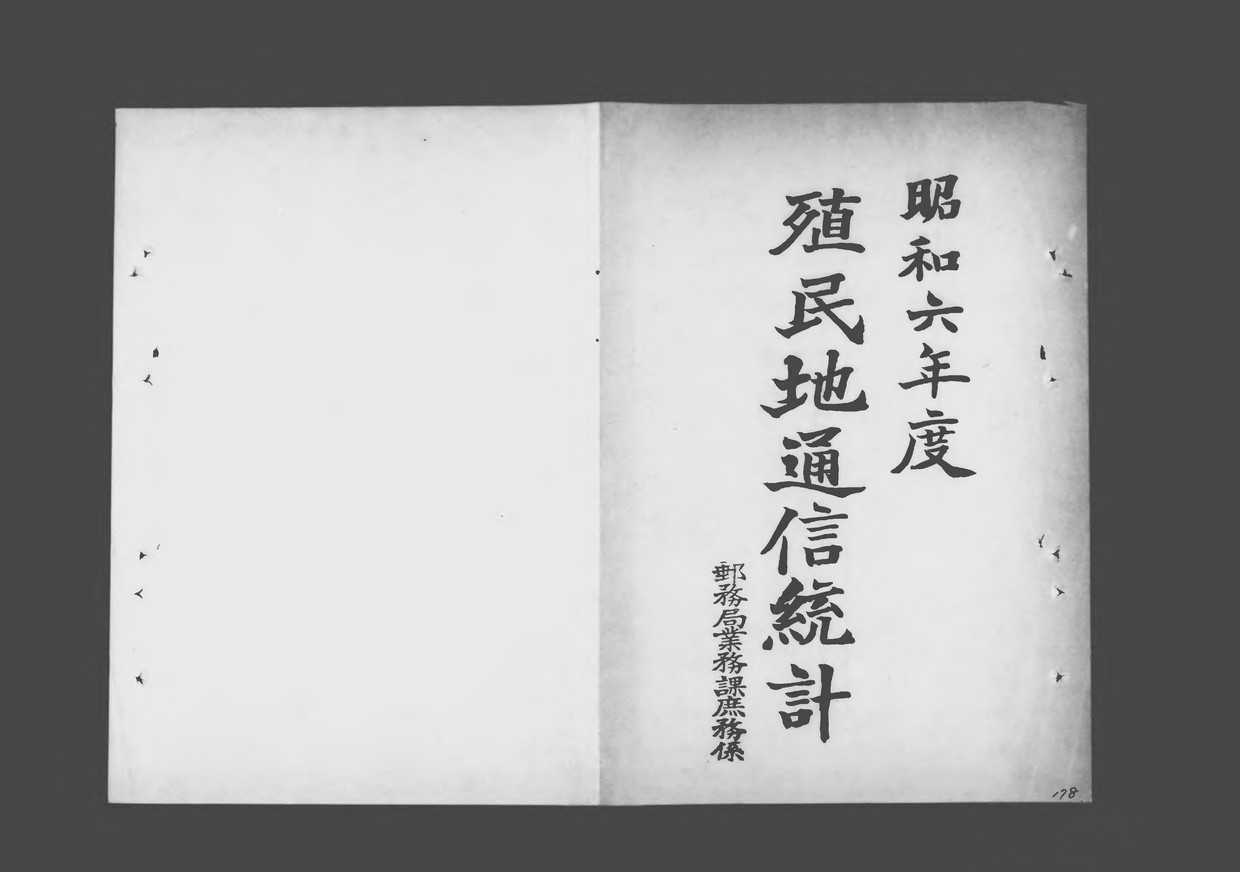 昭和六年度
殖民地通信統計
郵務局業務課庶務係
178